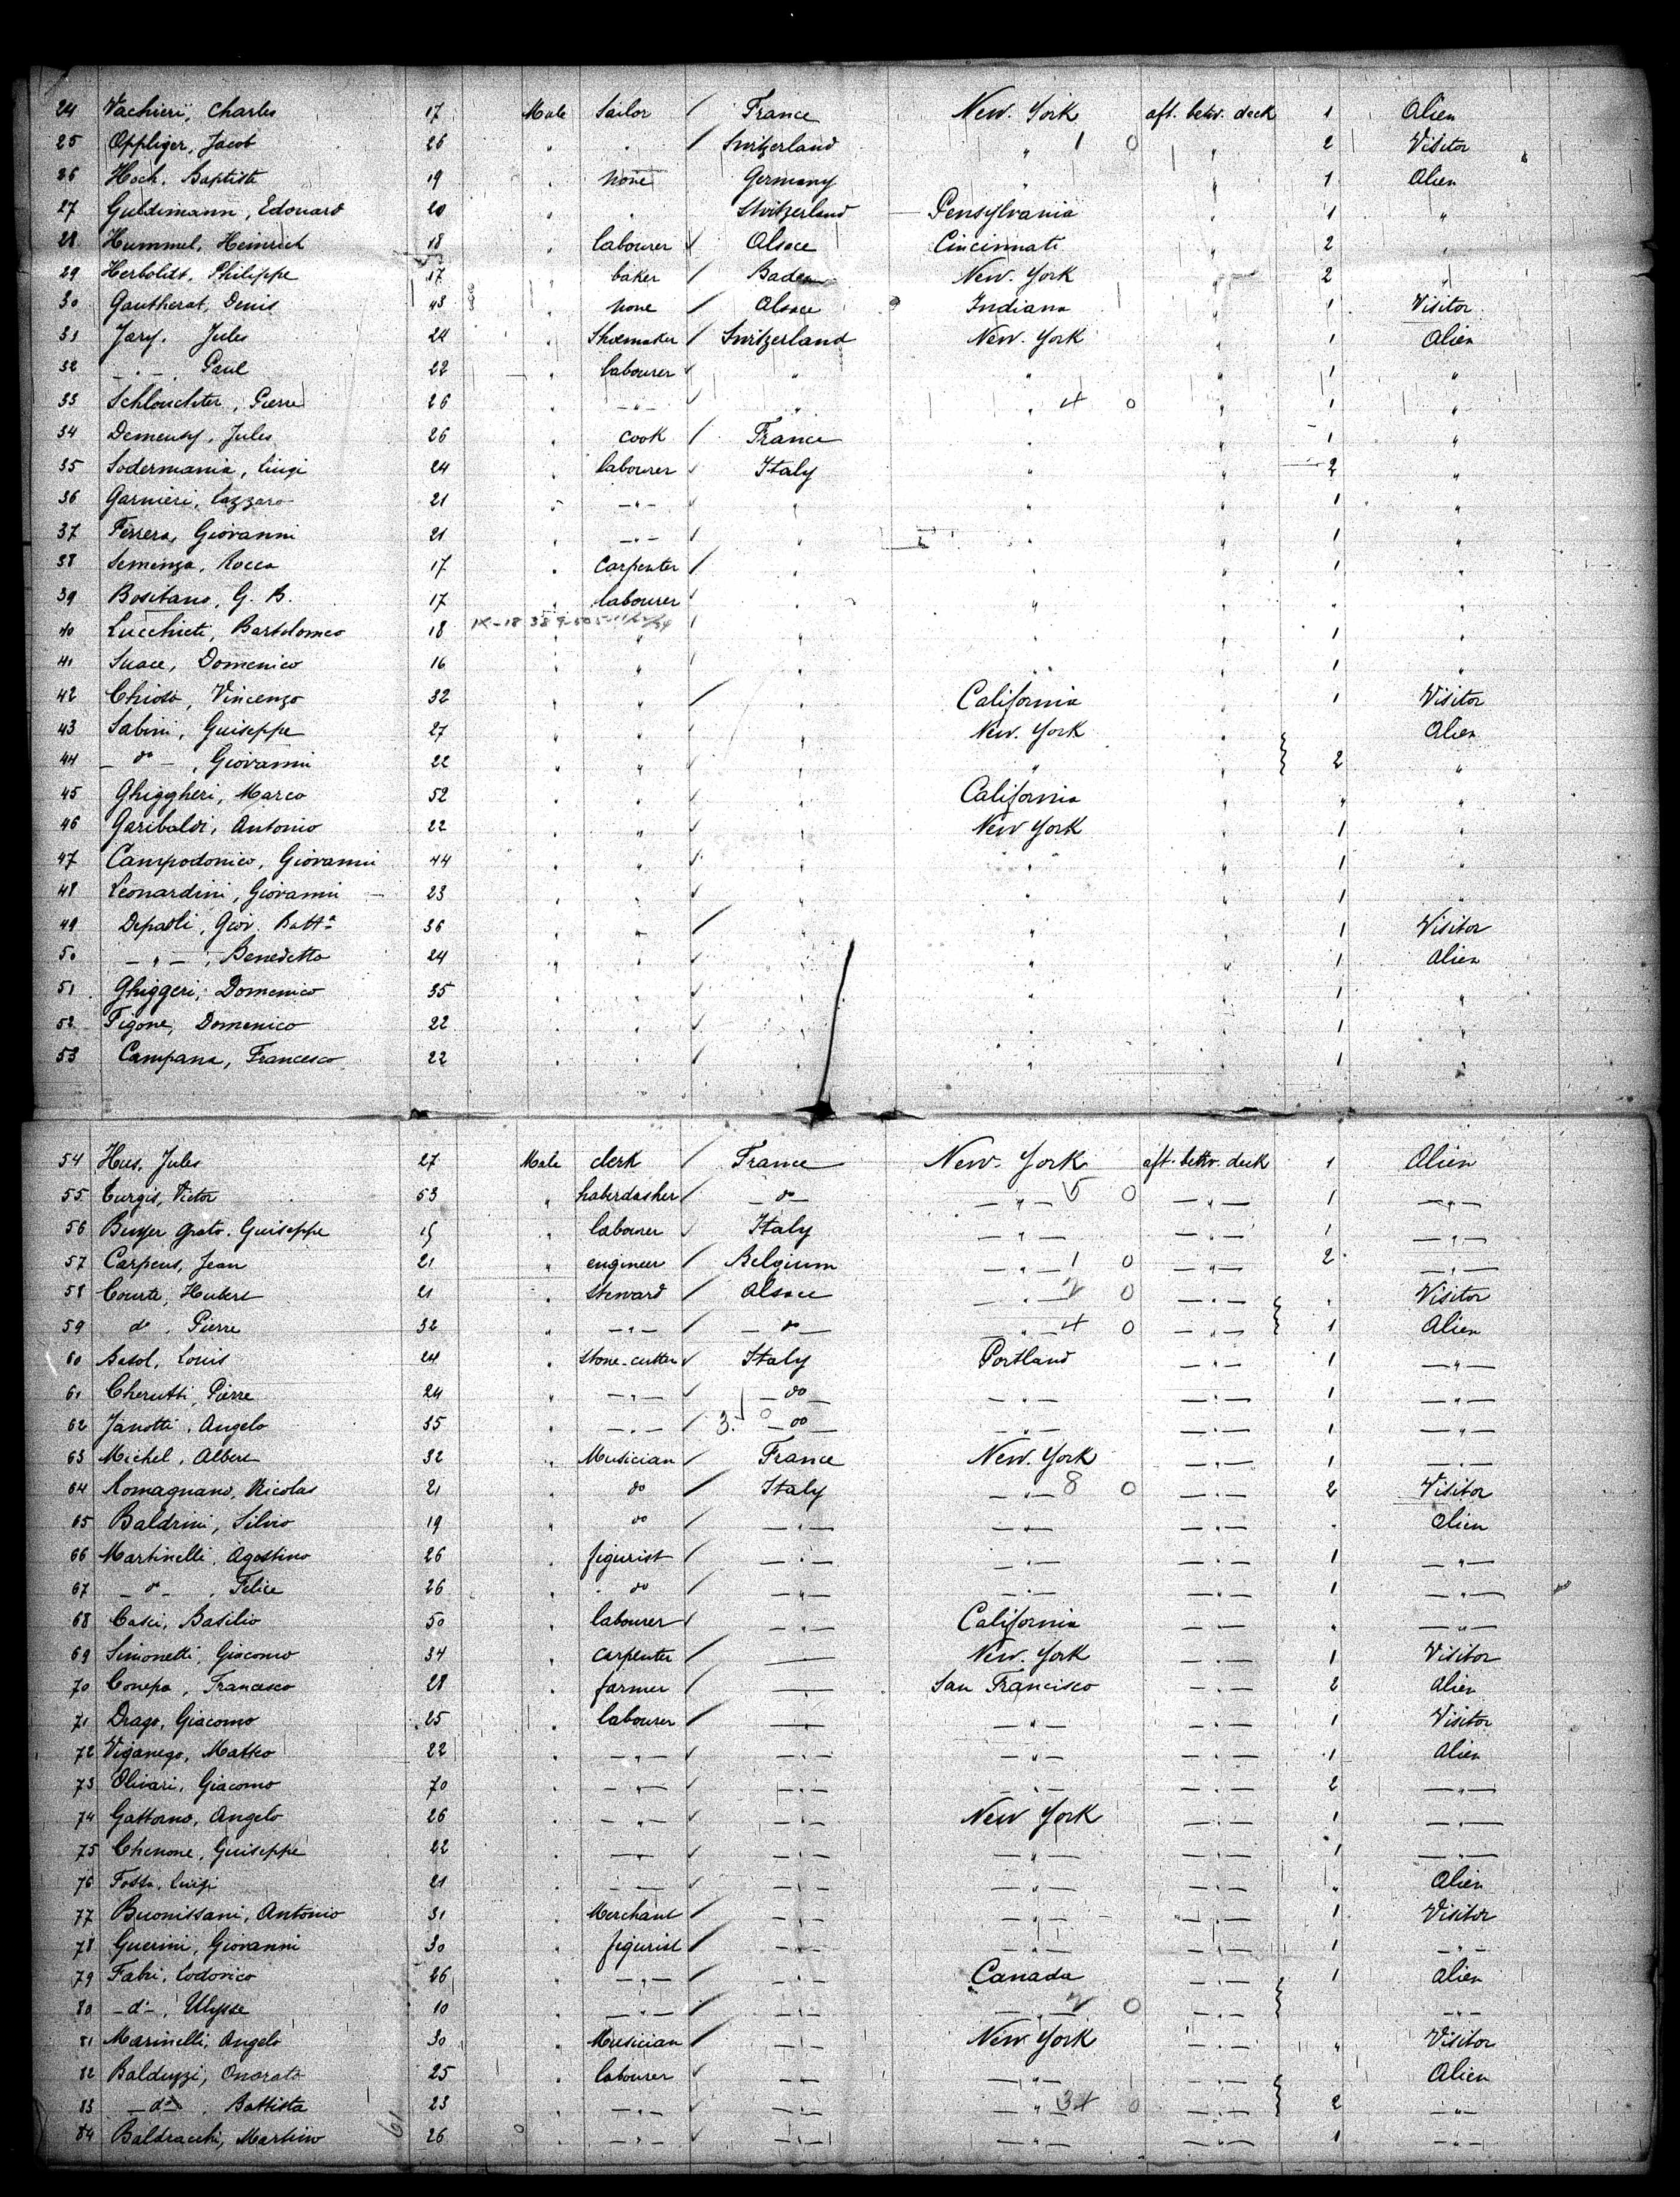 24 Vachieri, Charles 17 Male Sailor / France New. York aft. betw. deck 1 Alien
25 Oppliger, Jacob 26 " " / Switzerland " 1 0 " 2 Visitor
26 Hoch. Baptiste 19 " none Germany " " 1 Alien
27 Guldimann, Edouard 20 " " Switzerland Pensylvania " 1 "
28 Hummel, Heinrich 18 " labourer ✓ Alsace Cincinnati " 2 "
29 Herboldt, Philippe 17 " baker / Baden New. York " 2 "
30 Gautherat, Denis 43 " none / Alsace Indiana " 1 Visitor
31 Jary. Jules 24 " Shoemaker / Switzerland New. York " 1 Alien
32 - " - Paul 22 " labourer ✓ " " " 1 "
33 Schlouchter, Pierre 26 " - " - ✓ " " 4 0 " 1 "
34 Demeusy, Jules 26 " cook / France " " 1 "
35 Sodermania, Luigi 24 " labourer ✓ Italy " " 2 "
36 Garnieri, Lazzaro 21 " - " - ✓ " " " 1 "
37 Ferrera, Giovanni 21 " - " - ✓ " " " 1 "
38 Semenza, Rocca 17 " Carpenter / " " " 1 "
39 Bositano, G. B. 17 " labourer ✓ " " " " "
40 Lucchieti, Bartolomeo 18 " " / " " " 1 "
41 Suace, Domenico 16 " " / " " " 1 "
42 Chiosa, Vincenzo 32 " " / " California " 1 Visitor
43 Sabini, Guiseppe 27 " " ✓ " New. York " Alien
44 - do - , Giovanni 22 " " ✓ " " " 2 "
45 Ghiggheri, Marco 52 " " ✓ " California " " "
46 Garibaldi, Antonio 22 " " ✓ " New York " 1 "
47 Campodonico, Giovanni 44 " " ✓ " " " 1 "
48 Leonardini, Giovanni 23 " " ✓ " " " 1 "
49 Depaoli, Giov. Batta 36 " " / " " " 1 Visitor
50 - " - , Benedetto 24 " " ✓ " " " 1 Alien
51 Ghiggeri, Domenico 35 " " ✓ " " " 1 "
52 Figone, Domenico 22 " " ✓ " " " 1 "
53 Campana, Francesco 22 " " ✓ " " " 1 "
54 Hus, Jules 27 Male clerk / France New. York aft. betw. deck 1 Alien
55 Turgis, Victor 53 " haberdasher / - do - - " - 5 0 - " - 1 - " -
56 Grato. Guiseppe 15 " labourer ✓ Italy - " - - " - 1 - " -
57 Carpens, Jean 21 " engineer / Belgium - " - 1 0 - " - 2 - " -
58 Courte, Hubert 21 " Steward / Alsace - " - 2 0 - " - " Visitor
59 do , Pierre 32 " - " - / - do - - " - 4 0 - " - 1 Alien
60 Basol, Louis 24 " Stone-cutter ✓ Italy Portland - " - 1 - " -
61 Cherutti, Pierre 24 " - " - ✓ - do - - " - - " - 1 - " -
62 Janotti, Angelo 35 " - " - / - do - " - - " - 1 - " -
63 Michel, Albert 32 " Musician / France New. York - " - 1 - " -
64 Romagnano, Nicolas 21 " do / Italy - " - 8 0 - " - 2 Visitor
65 Baldrini, Silvio 19 " do / - " - - " - - " - " Alien
66 Martinelli, Agostino 26 " figurist / - " - - " - - " - 1 - " -
67 - do - , Felice 26 " do / - " - - " - - " - 1 - " -
68 Casci, Basilio 50 " labourer ✓ - " - California - " - " - " -
69 Simonetti, Giacomo 34 " carpenter / — New. York - " - 1 Visitor
70 Conepa, Francesco 28 " farmer / - " - San Francisco - " - 2 Alien
71 Drago, Giacomo 25 " labourer / - " - - " - - " - 1 Visitor
72 Viganego, Matteo 22 " - " - ✓ - " - - " - - " - 1 Alien
73 Olivari, Giacomo 70 " - " - ✓ - " - - " - - " - 2 - " -
74 Gattorno, Angelo 26 " - " - ✓ - " - New York - " - 1 - " -
75 Chenone, Guiseppe 22 " - " - ✓ - " - - " - - " - 1 - " -
76 Fossa, Luigi 21 " - " - ✓ - " - - " - - " - " Alien
77 Buonissani, Antonio 31 " Merchant / - " - - " - - " - 1 Visitor
78 Guerini, Giovanni 30 " figurist / - " - - " - - " - 1 - " -
79 Fabri, Lodovico 26 " - " - / - " - Canada - " - 1 Alien
80 - do - , Ulysse 10 " - " - / - " - - " - 2 0 - " - - " -
81 Marinelli, Angelo 30 " Musician / - " - New York - " - " Visitor
82 Balduzzi, Onorato 25 " labourer ✓ - " - - " - - " - Alien
83 - do - , Battista 23 " - " - ✓ - " - - " - 34 0 - " - 2 - " -
84 Baldracchi, Martino 26 " - " - ✓ - " - - " - - " - 1 - " -